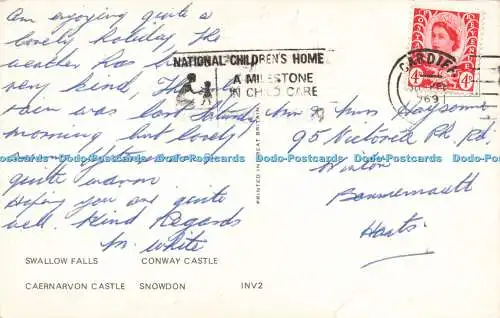 Am enjoying quite a
lovely holiday. The
weather has been
very kind. The
rain was last Saturday
morning but lovely
quite warm
Hoping you are quite
well. Kind Regards
White
NATIONAL CHILDREN'S HOME
A MILESTONE
IN CHILD CARE
CARDIFF
1969
4D
4D
PRINTED IN GREAT BRITAIN
95 Victoria Pk. Rd.
Winton
Bournemouth
Hants.
SWALLOW FALLS CONWAY CASTLE
CAERNARVON CASTLE SNOWDON INV2
Dodo-Postcards Dodo-Postcards Dodo-Postcards Dodo-Postcards Dodo-Postcards